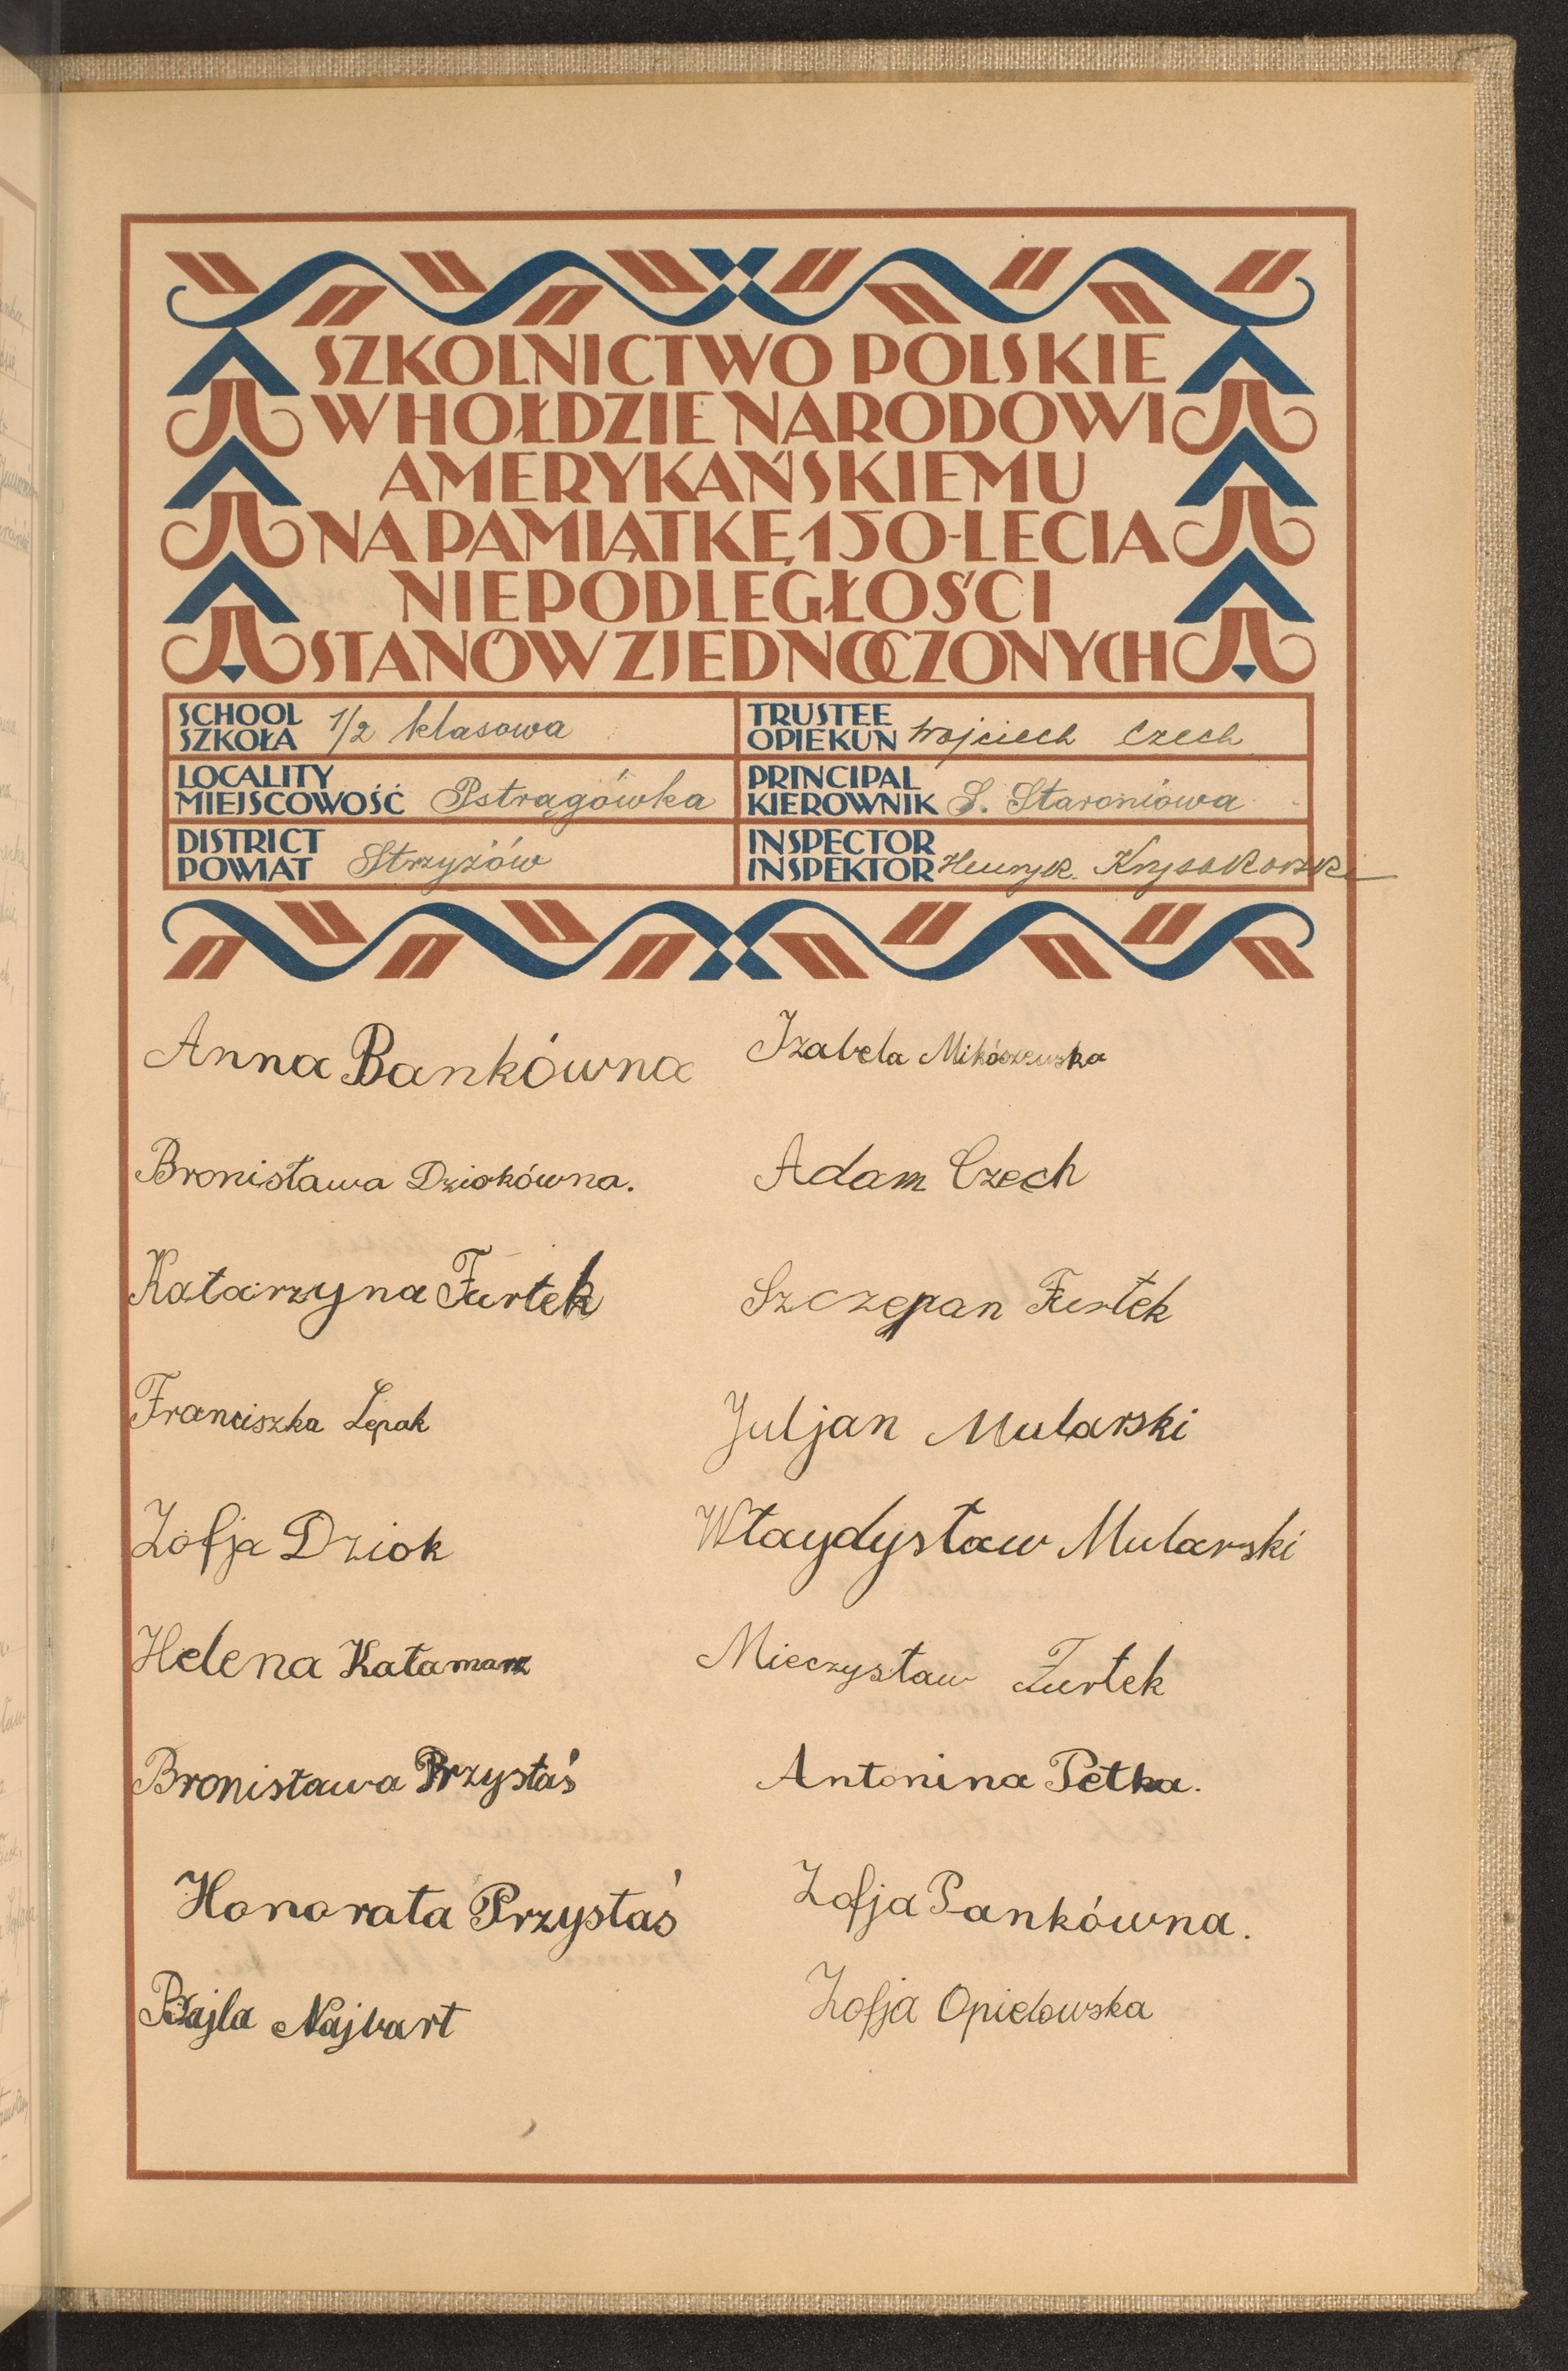 SZKOLNICTWO POLSKIE
W HOŁDZIE NARODOWI
AMERYKAŃSKIEMU
NA PAMIĄTKĘ 150-LECIA
NIEPODLEGŁOŚCI
STANÓW ZJEDNOCZONYCH
SCHOOL
SZKOŁA 1/2 klasowa
TRUSTEE
OPIEKUN Wojciech Czech
LOCALITY
MIEJSCOWOŚĆ Pstrągówka
PRINCIPAL
KIEROWNIK S. Staroniowa
DISTRICT
POWIAT Strzyżów
INSPECTOR
INSPEKTOR Henryk
Anna Bankówna
Izabela
Bronisława Dziokówna.
Adam Czech
Katarzyna Furtek
Szczepan Furtek
Franciszka Lepak
Juljan Mularski
Zofja Dziok
Właydysław Mularski
Helena Kałamarz
Mieczysław Furtek
Bronisława Przystaś
Antonina Petka.
Honorata Przystaś
Zofja Pankówna.
Bajla Najbart
Zofja Opielowska